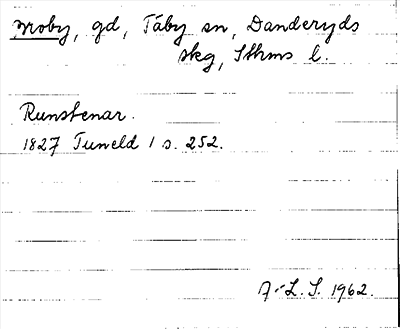 Moby, gd, Täby sn, Danderyds
skg, Sthms l.
Runstenar.
1827 Tuneld 1 s. 252.
A-L. S. 1962.